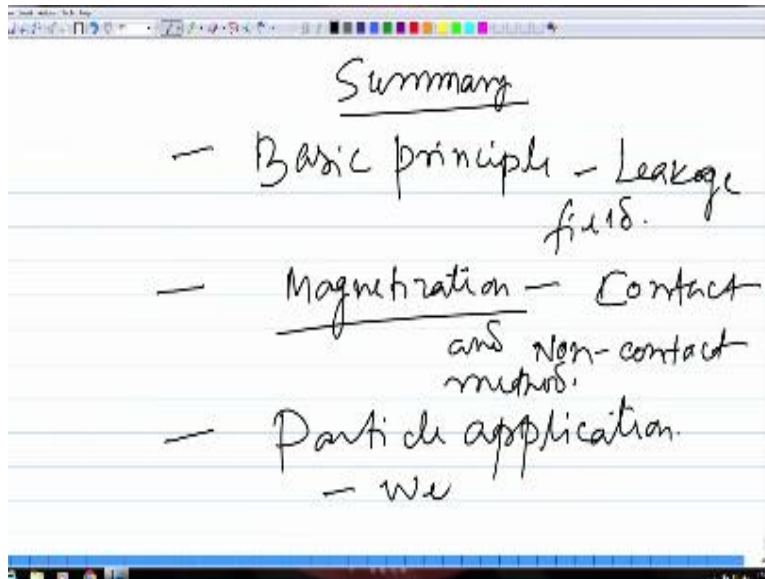 Summary
- Basic principle - Leakage
field.
- Magnetization - Contact
and Non-contact
method.
- Particle application.
- We